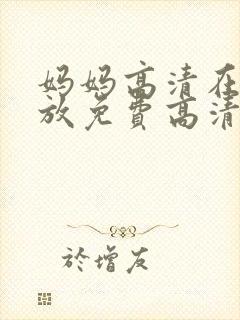 妈妈高清在
放免费高清
於增友